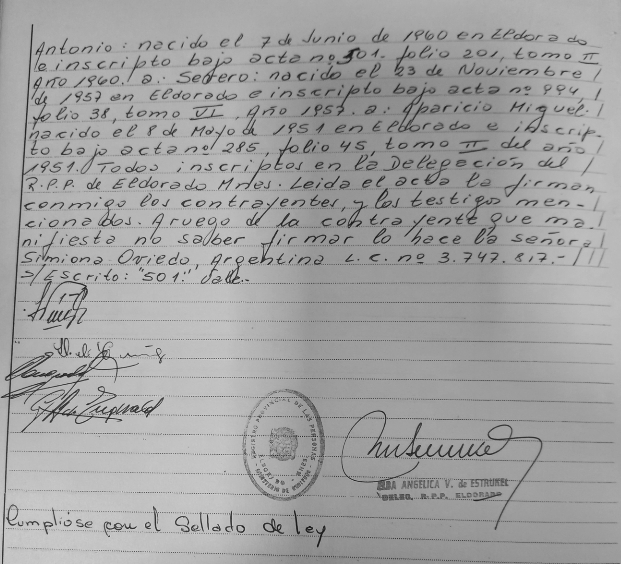 Antonio: nacido el 7 de Junio de 1960 en Eldorado
e inscripto bajo acta nº 501. folio 201, tomo II
Año 1960. a: Sotero: nacido el 23 de Noviembre /
de 1957 en Eldorado e inscripto bajo acta nº 994 /
folio 38, tomo VI, Año 1957. a: Aparicio Miguel: /
nacido el 8 de Mayo de 1951 en Eldorado e inscrip-
to bajo acta nº 285, folio 45, tomo II del año /
1951. Todos inscriptos en la Delegación del /
R.P.P. de Eldorado Mnes. Leida el acta la firman
conmigo los contrayentes, y los testigo men-
cionados. A ruego de la contrayente que ma-
nifiesta no saber firmar lo hace la señora /
Simiona Oviedo, Argentina L.C. nº 3.747.817.- / / /
Escrito: "501:" Vale.-
REGISTRO PROVINCIAL DE LAS PERSONAS
ELBA ANGELICA V. de ESTRUKEL
DELEG. R.P.P. ELDORADO
Cumplióse con el Sellado de ley